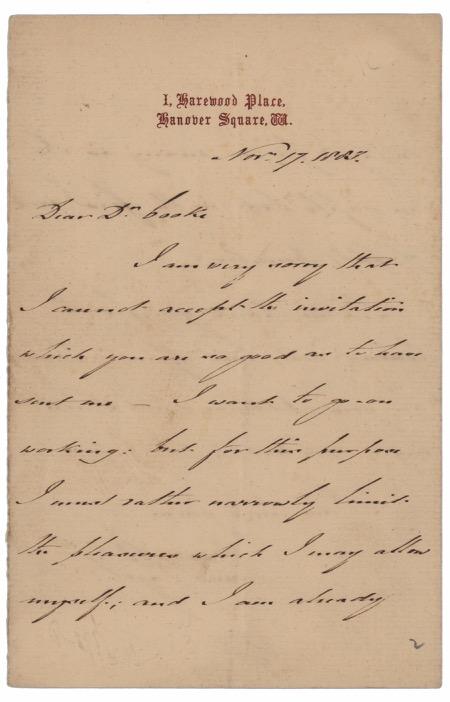 1, Harewood Place,
Hanover Square, W.
Nov. 17. 1883.
Dear Dr. Cooke
I am very sorry that
I cannot accept the invitation
which you are so good as to have
sent me — I want to go on
working: but for this purpose
I must rather narrowly limit
the pleasures which I may allow
myself; and I am already
2